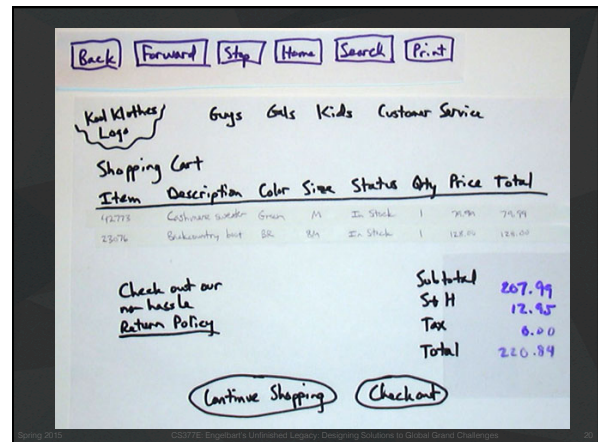 Back Forward Stop Home Search Print
Kool Klothes Logo Guys Gals Kids Customer Service
Shopping Cart
Item Description Color Size Status Qty Price Total
42773 Cashmere sweater Green M In Stock 1 79.99
23076 Backcountry boot BR In Stock 1 128.00 128.00
Check out our
no-hassle
Return Policy
Subtotal 207.99
S+H 12.95
Tax 0.00
Total 220.84
Continue Shopping Checkout
Spring 2015 CS377E: Engelbart's Unfinished Legacy: Designing Solutions to Global Grand Challenges 20